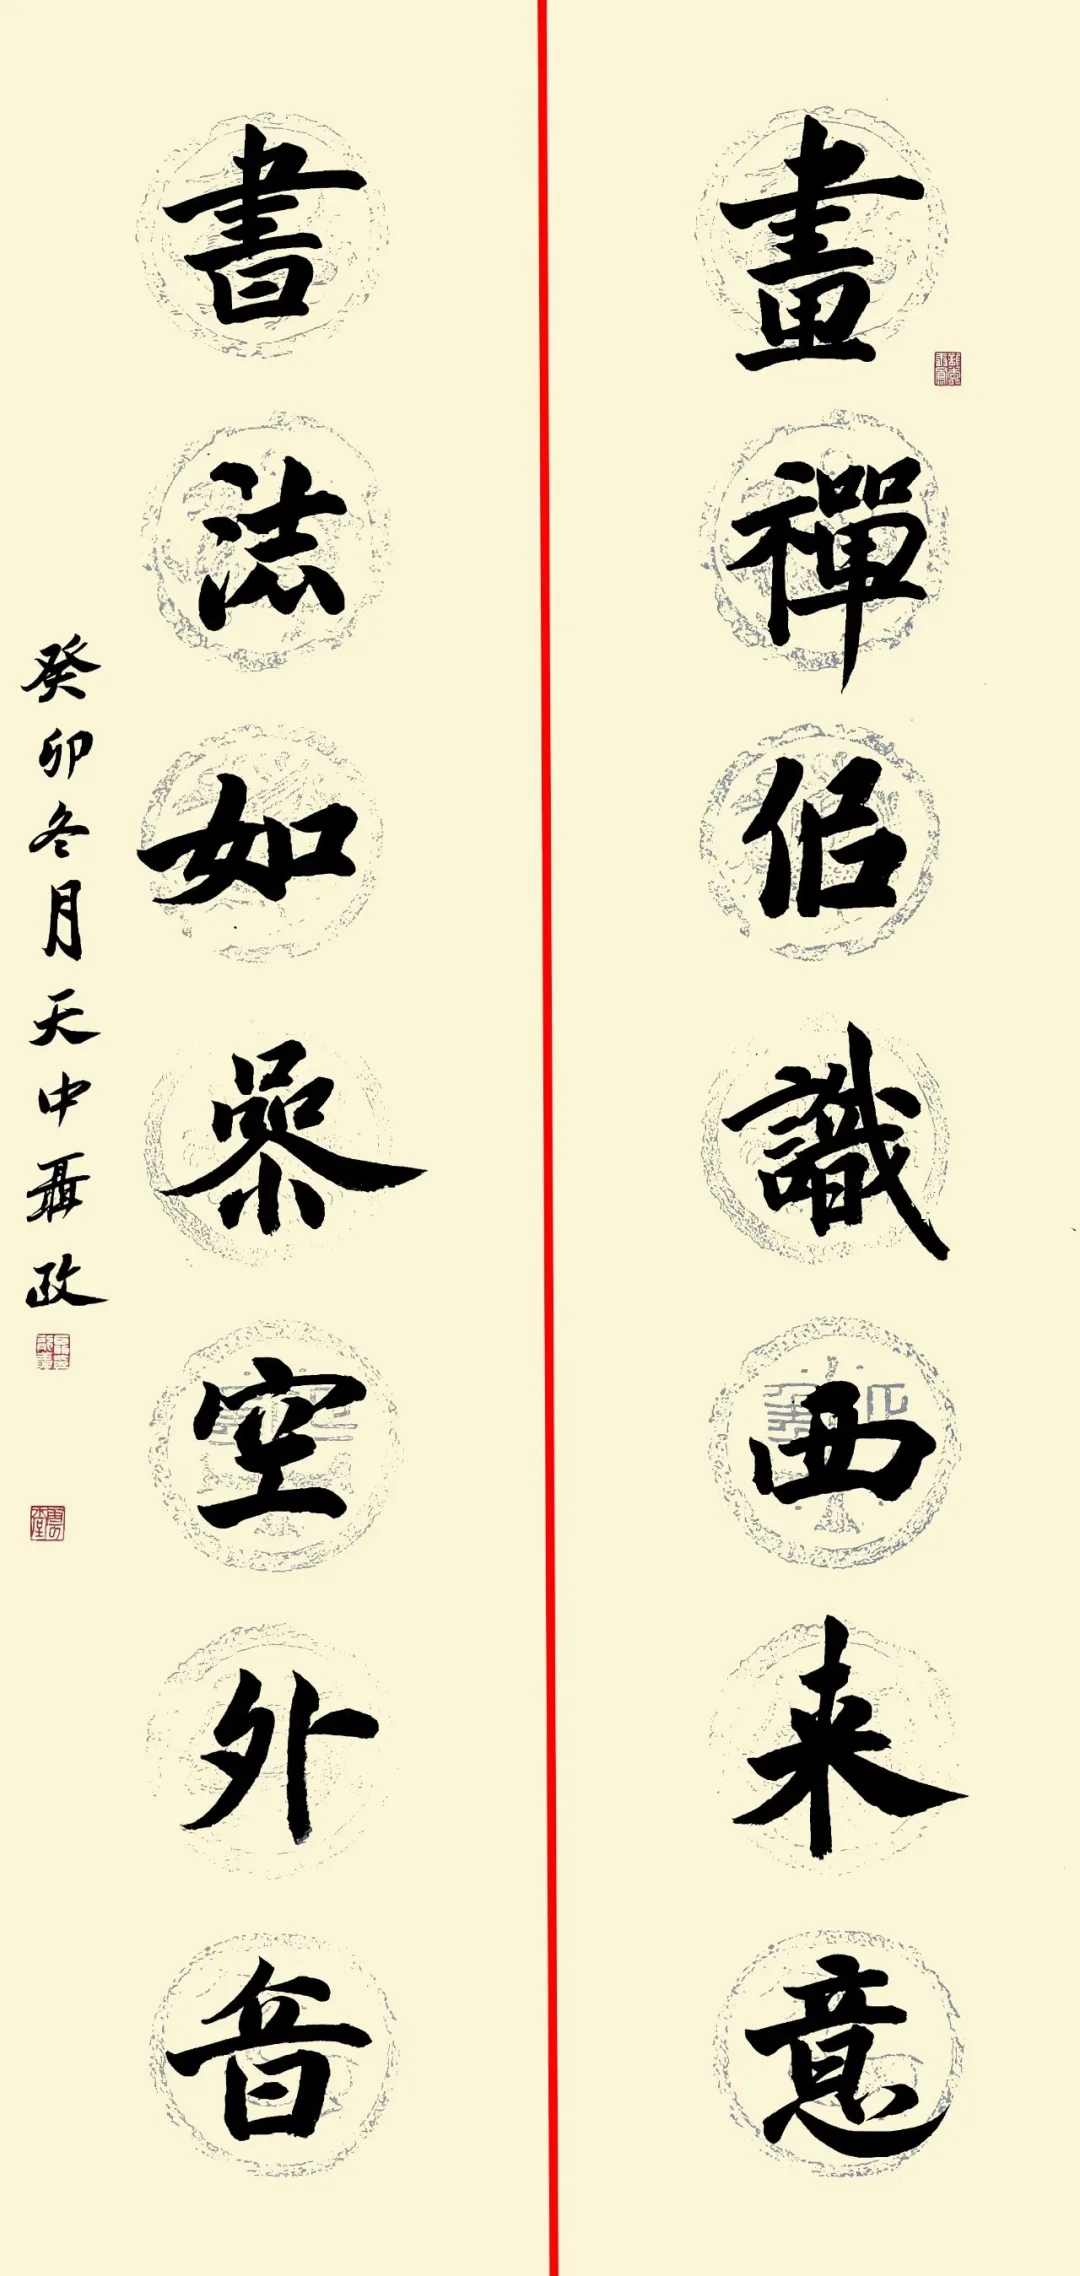 畫禪佀識西来意
書法如叅空外音
癸卯冬月天中聶政